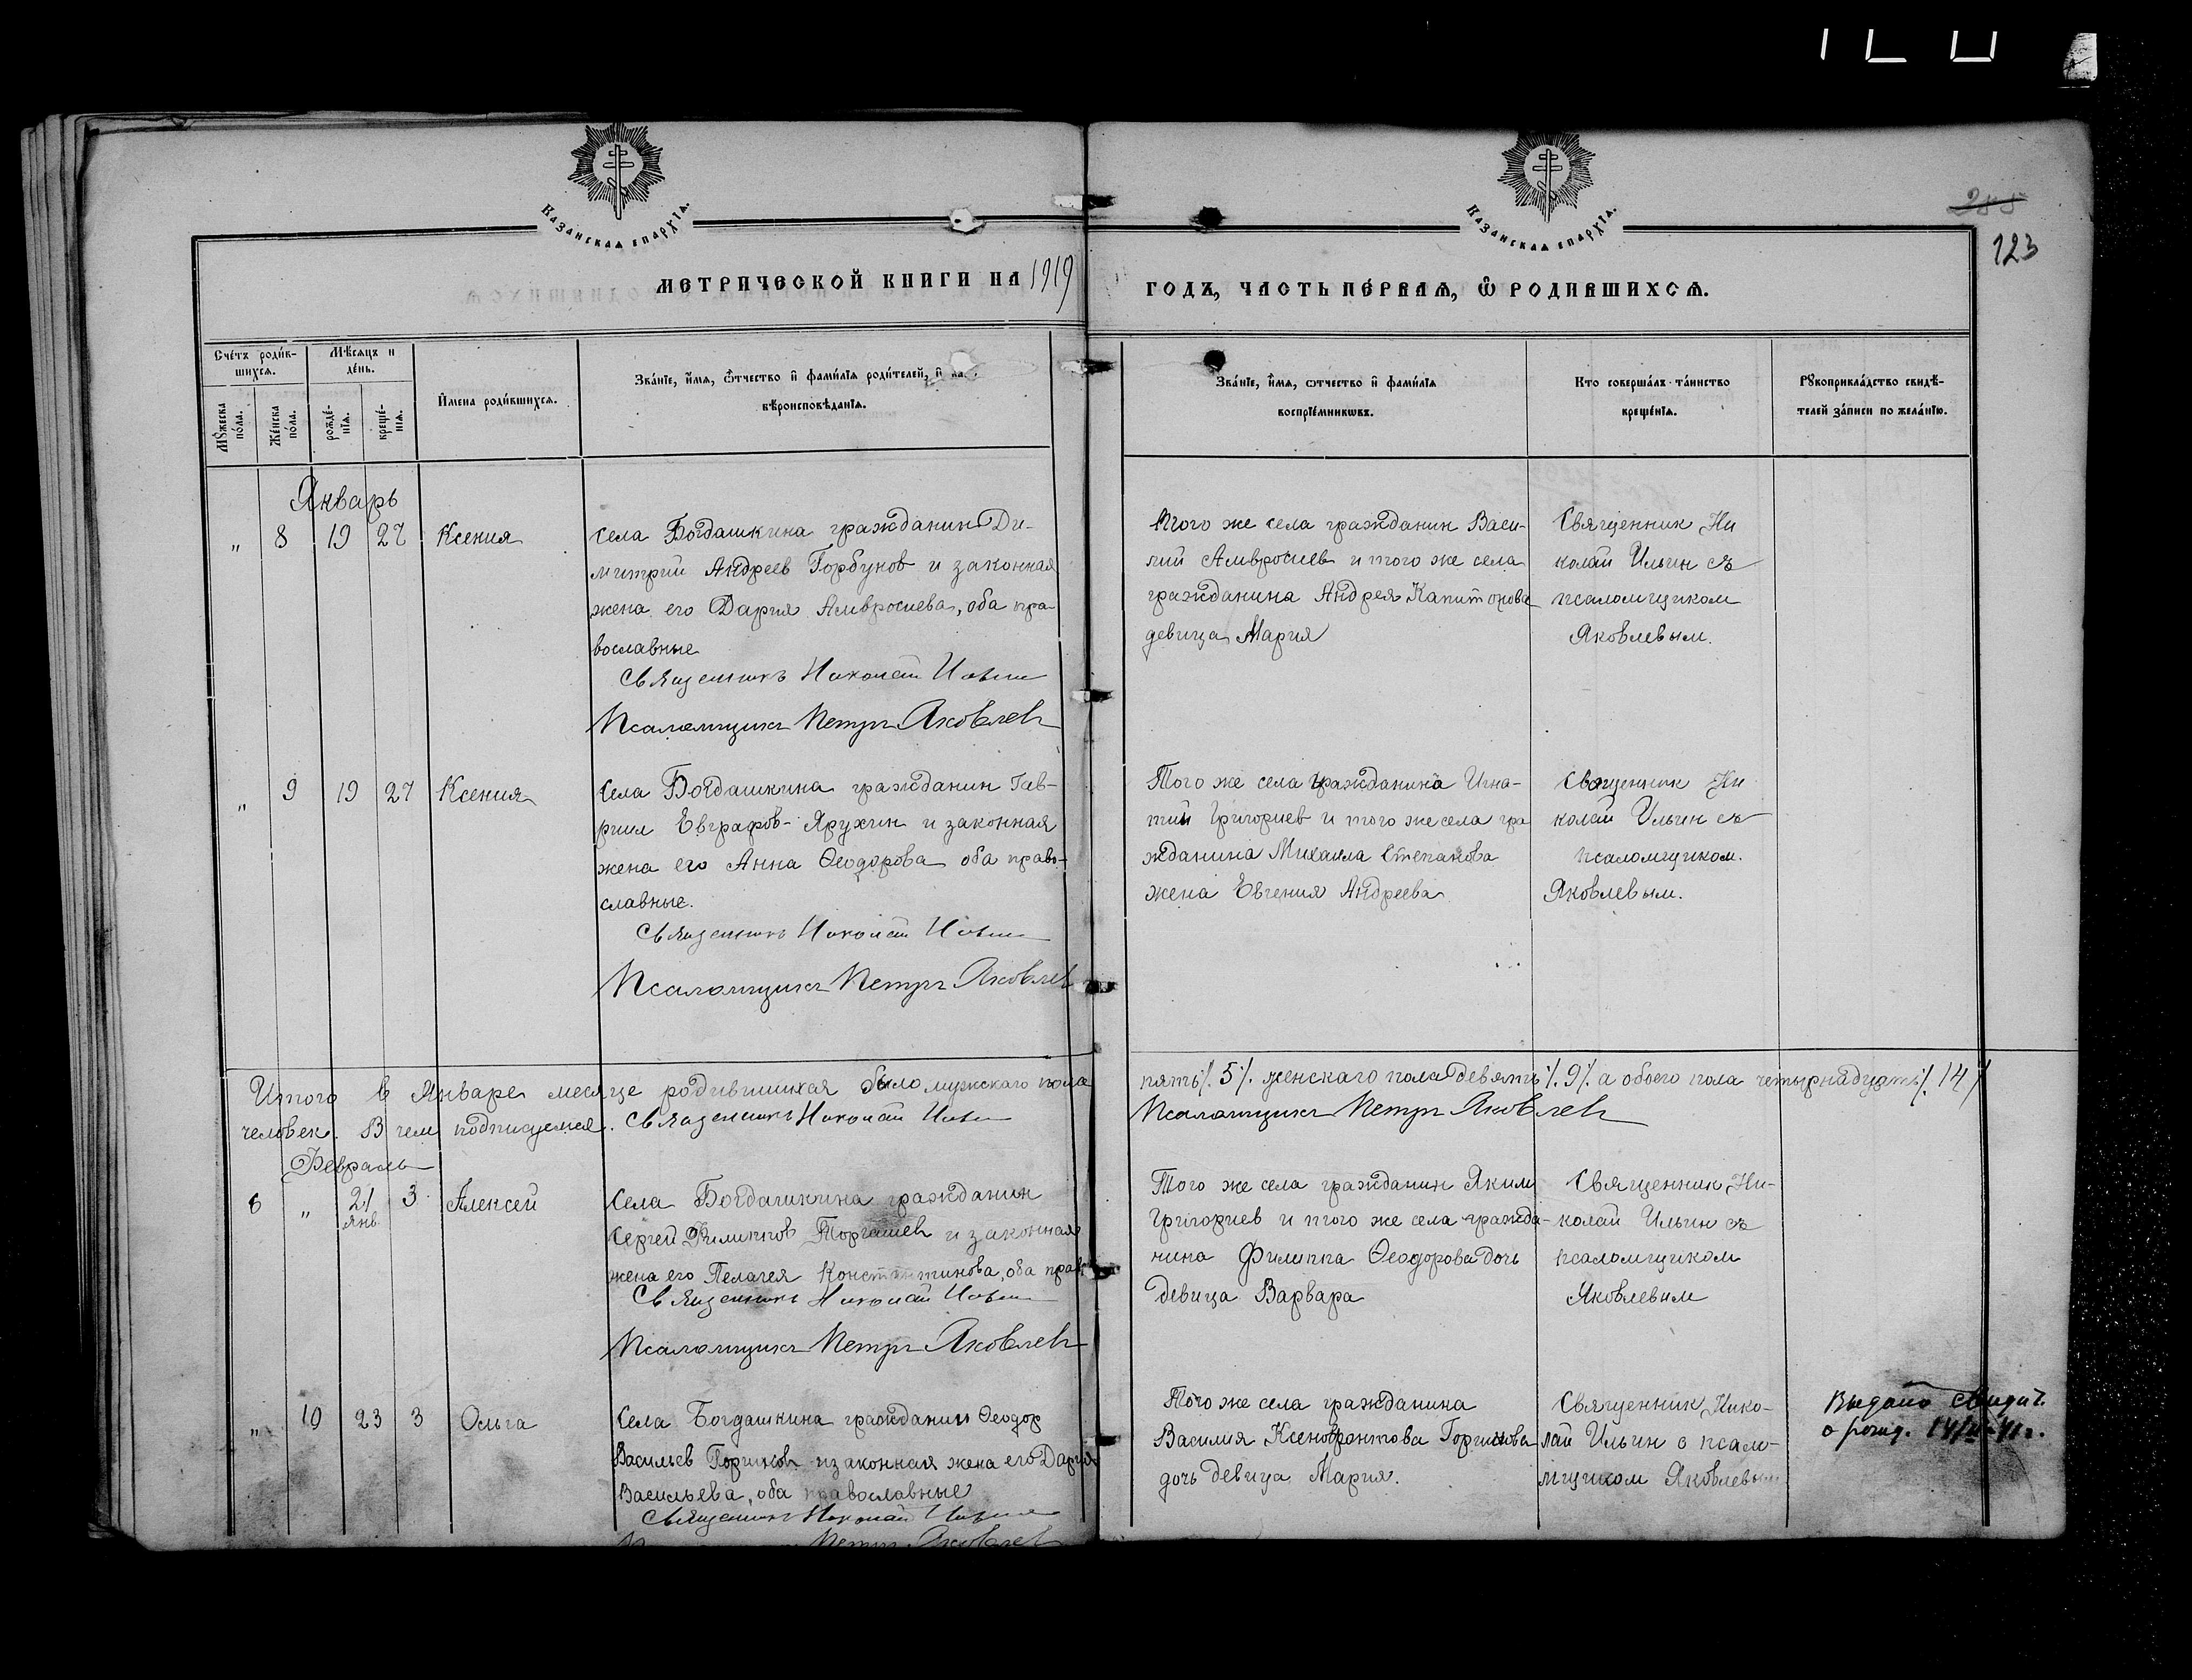 Казанская епархія.
Казанская епархія.
123
Метрической книги на 1919
годъ, часть первая, ѡ родившихся.
Счетъ родившихся.
Мѣсяцъ и день.
Мужеска пола.
Женска пола.
рожденія.
крещенія.
Имена родившихся.
Званіе, имя, ѿчество и фамилія родителей, и ка
вѣроисповѣданія.
Званіе, имя, ѿчество и фамилія
воспріемниковъ.
Кто совершалъ таинство
крещенія.
Рукоприкладство свидѣ-
телей записи по желанію.
Январь
„ 8 19 27 Ксения
Села Богдашкина гражданин Ди-
митрий Андреев Горбунов и законная
жена его Дария Амвросиева, оба пра-
вославные
Священникъ Николай Ильин
Псаломщикъ Петръ Яковлевъ
Того же села гражданин Васи-
лий Амвросиев и того же села
гражданина Андрея Капитонова
девица Мария
Священник Ни
колай Ильин съ
псаломщиком
Яковлевым.
„ 9 19 27 Ксения
Села Богдашкина гражданин Гав-
риил Евграфов Ярухин и законная
жена его Анна Ѳеодорова оба право-
славные.
Священникъ Николай Ильин
Псаломщикъ Петръ Яковлев
Того же села гражданина Игна-
тий Григориев и того же села гра
жданина Михаила Степанова
жена Евгения Андреева
Священник Ни
колай Ильин съ
псаломщиком.
Яковлевым.
Итого в Январе месяце родившихся было мужскаго пола
пять /. 5 /. женскаго пола девять /. 9 /. а обоего пола четырнадцать /. 14 /
человек. В чем подписуемся. Священникъ Николай Ильин
Псаломщикъ Петръ Яковлевъ
Февраль
6 „ 21 янв. 3 Алексей
Села Богдашкина гражданин
Сергей Филиппов Торгашев и законная
жена его Пелагея Константинова, оба прав
Священникъ Николай Ильин
Псаломщикъ Петръ Яковлевъ
Того же села гражданин Яким
Григориев и того же села гражда-
нина Филиппа Ѳеодорова дочь
девица Варвара
Священник Ни-
колай Ильин съ
псаломщиком
Яковлевым
„ 10 23 3 Ольга
Села Богдашкина гражданин Ѳеодор
Васильев и законная жена его Дария
Васильева, оба православные
Священникъ Николай Ильин
Петръ Яковлев
Того же села гражданина
Василия Ксенофонтова
дочь девица Мария.
Священник Нико-
лай Ильин с псало-
мщиком Яковлевым
Выдано свидет.
о рожд.